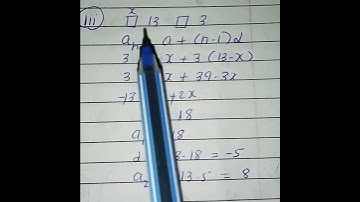 x
iii) □ 13 □ 3
an a + (n-1)d
3 x + 3 (13-x)
3 x + 39-3x
-13 +2x
18
a 18
d 3-18 = -5
a2 13-5 = 8